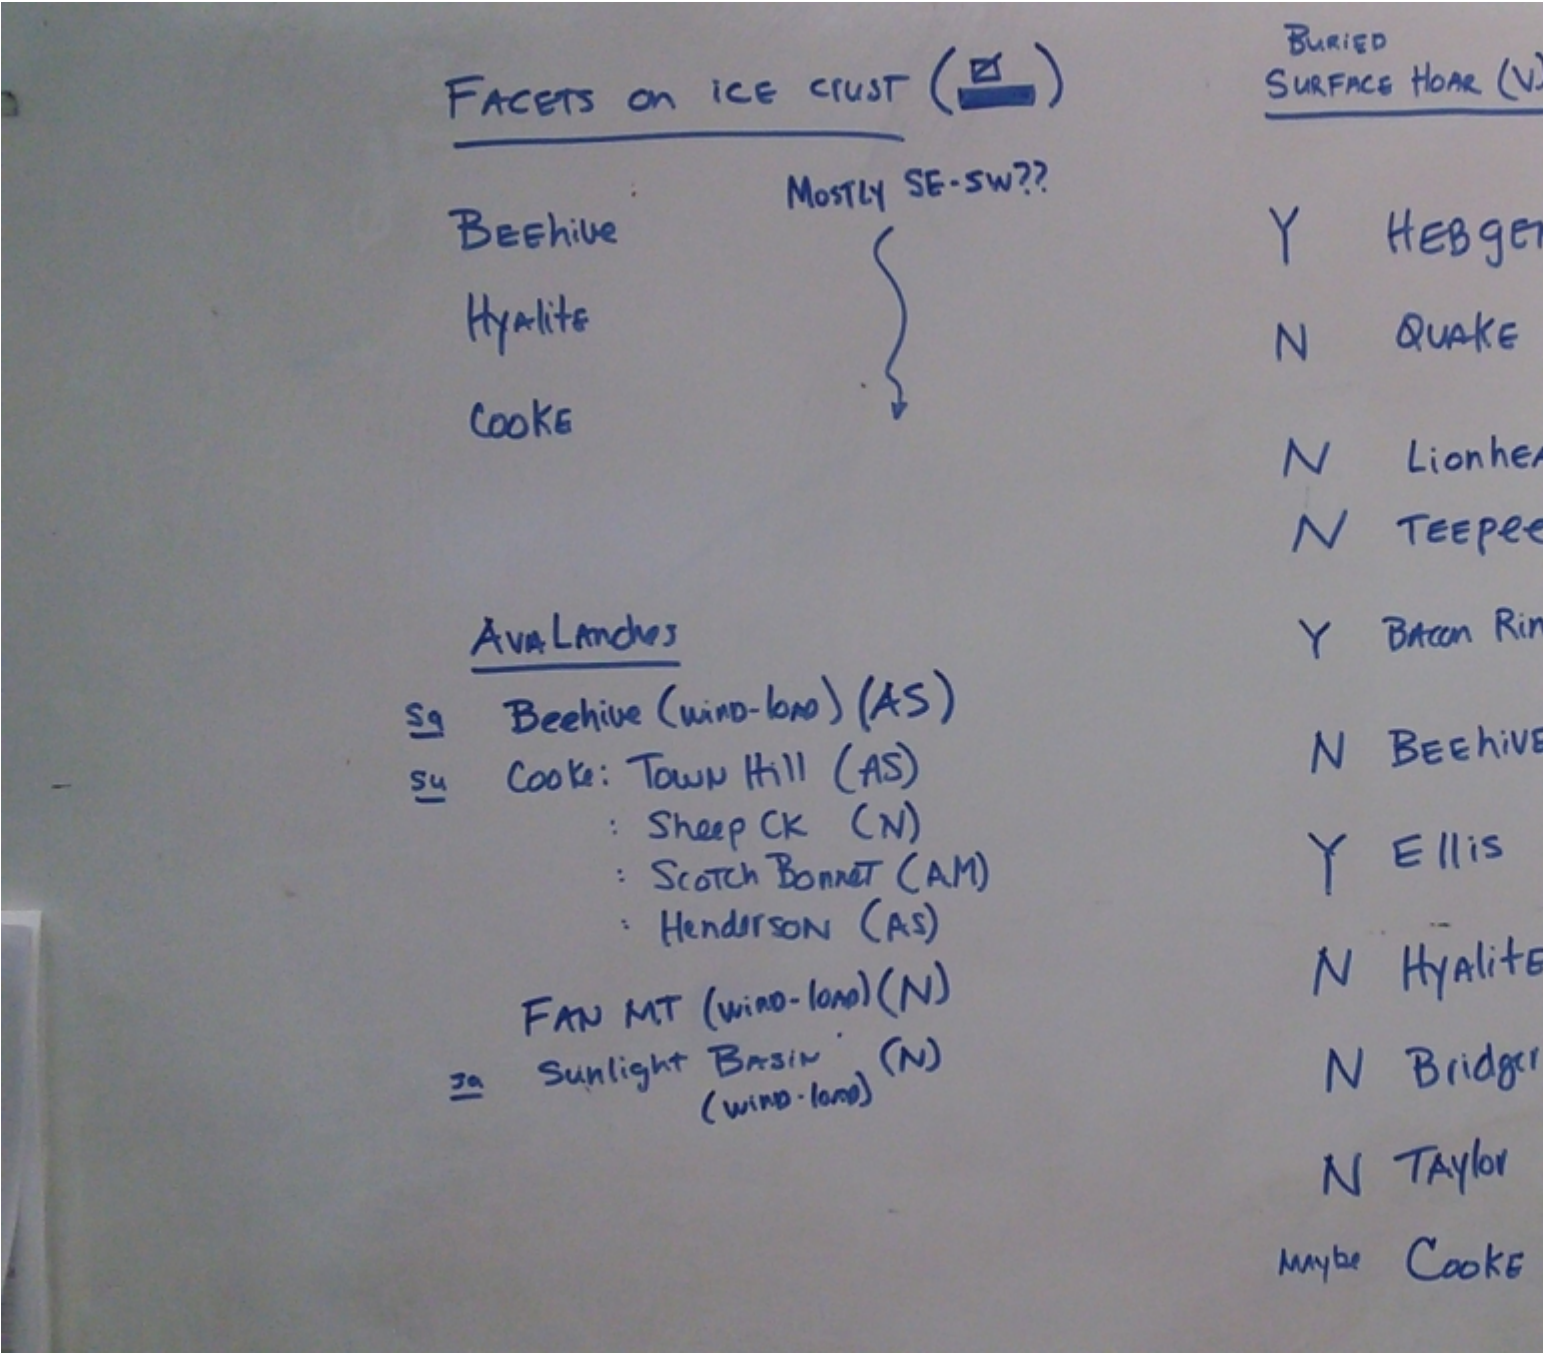 FACETS on ICE CRUST ( )
Mostly SE-SW??
BEEhive
HyAlite
COOKE
AvaLanches
Sa Beehive (WIND-LOAD) (AS)
Su Cooke: Town Hill (AS)
: Sheep CK (N)
: Scotch Bonnet (AM)
: Henderson (AS)
FAN MT (WIND-LOAD) (N)
Sunlight BASIN (N)
(WIND-LOAD)
BURIED
SURFACE HOAR (V)
Y HEBge
N QUAKE
N Lionhe
N TEEpee
Y BAcon Ri
N BEEhivE
Y Ellis
N HyAlitE
N Bridger
N TAylor
MAybe COOKE